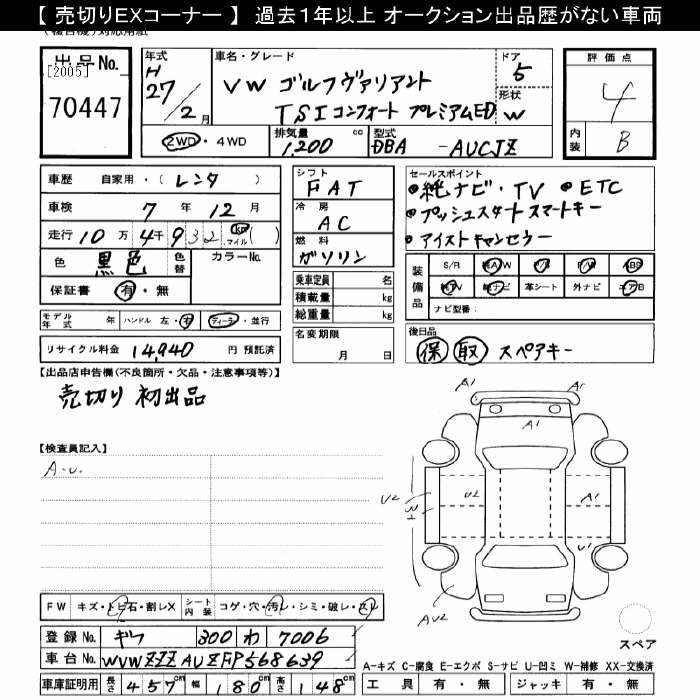 【 売切りEXコーナー 】 過去1年以上 オークション出品歴がない車両
出品No.
[2005]
70447
年式
H
27/2月
車名・グレード
VW ゴルフヴァリアント
TSI コンフォート プレミアムED
ドア
5
形状
W
評価点
4
内装
B
2WD・4WD
排気量 1,200 cc
型式 DBA -AUCJZ
車歴 自家用・(レンタ)
車検 7年 12月
走行 10万 4千 932 km マイル ( )
色 黒色 色替 カラーNo.
保証書 有・無
シフト
FAT
冷房
AC
燃料
ガソリン
乗車定員 名
積載量 kg
総重量 kg
セールスポイント
●純ナビ・TV ●ETC
●プッシュスタートスマートキー
●アイストキャンセラー
装備品
S/R 純A/W P/S P/W ABS
純TV 純ナビ 革シート 外ナビ エアB
ナビ型番:
モデル年式 年 ハンドル 左・右 ディーラー・並行
リサイクル料金 14,940 円 預託済
名変期限
月 日
後日品
保 取 スペアキー
【出品店申告欄(不良箇所・欠品・注意事項等)】
売切り 初出品
【検査員記入】
A・U.
A1 A1
A1
U2 W1 U1 A1
U1
AU2
スペア
FW キズ・トビ石・割レX シート内装 コゲ・穴・汚レ・シミ・破レ・スレ
登録No. ギフ 300 わ 7006
車台No. WVWZZZAUZFP568639
車庫証明用 長さ 457cm 幅 180cm 高さ 148cm
A-キズ C-腐食 E-エクボ S-サビ U-凹ミ W-補修 XX-交換済
工具 有・無 ジャッキ 有・無